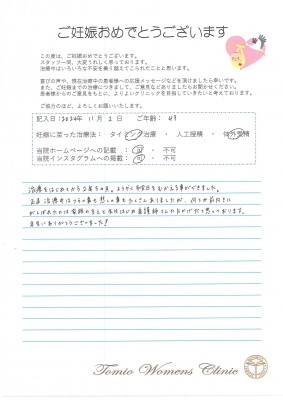 ご妊娠おめでとうございます
この度は、ご妊娠おめでとうございます。
スタッフ一同、大変うれしく思っております。
治療中はいろいろな不安を乗り越えてこられたことと思います。
喜びの声や、現在治療中の患者様への応援メッセージなどを頂けましたら幸いです。
また、ご妊娠までの治療につきまして、ご意見などありましたらお聞かせください。
患者様からのご意見をもとに、よりよいクリニックを目指していきたいと考えております。
ご協力のほど、よろしくお願いいたします。
記入日：2024年 11月 2日 ご年齢： 43
妊娠に至った治療法： タイミング治療 ・ 人工授精 ・ 体外受精
当院ホームページへの記載 ： 可 ・ 不可
当院インスタグラムへの掲載 ： 可 ・ 不可
治療をはじめてから2年5ヶ月。ようやく卒院をむかえる事ができました。
正直治療中はつらい事も悲しい事もたくさんありましたが、何とか前向きに
がんばれたのは家族の支えと本院はじめ看護師さんのおかげだと思っております。
本当にありがとうございました！
Tomio Womens Clinic